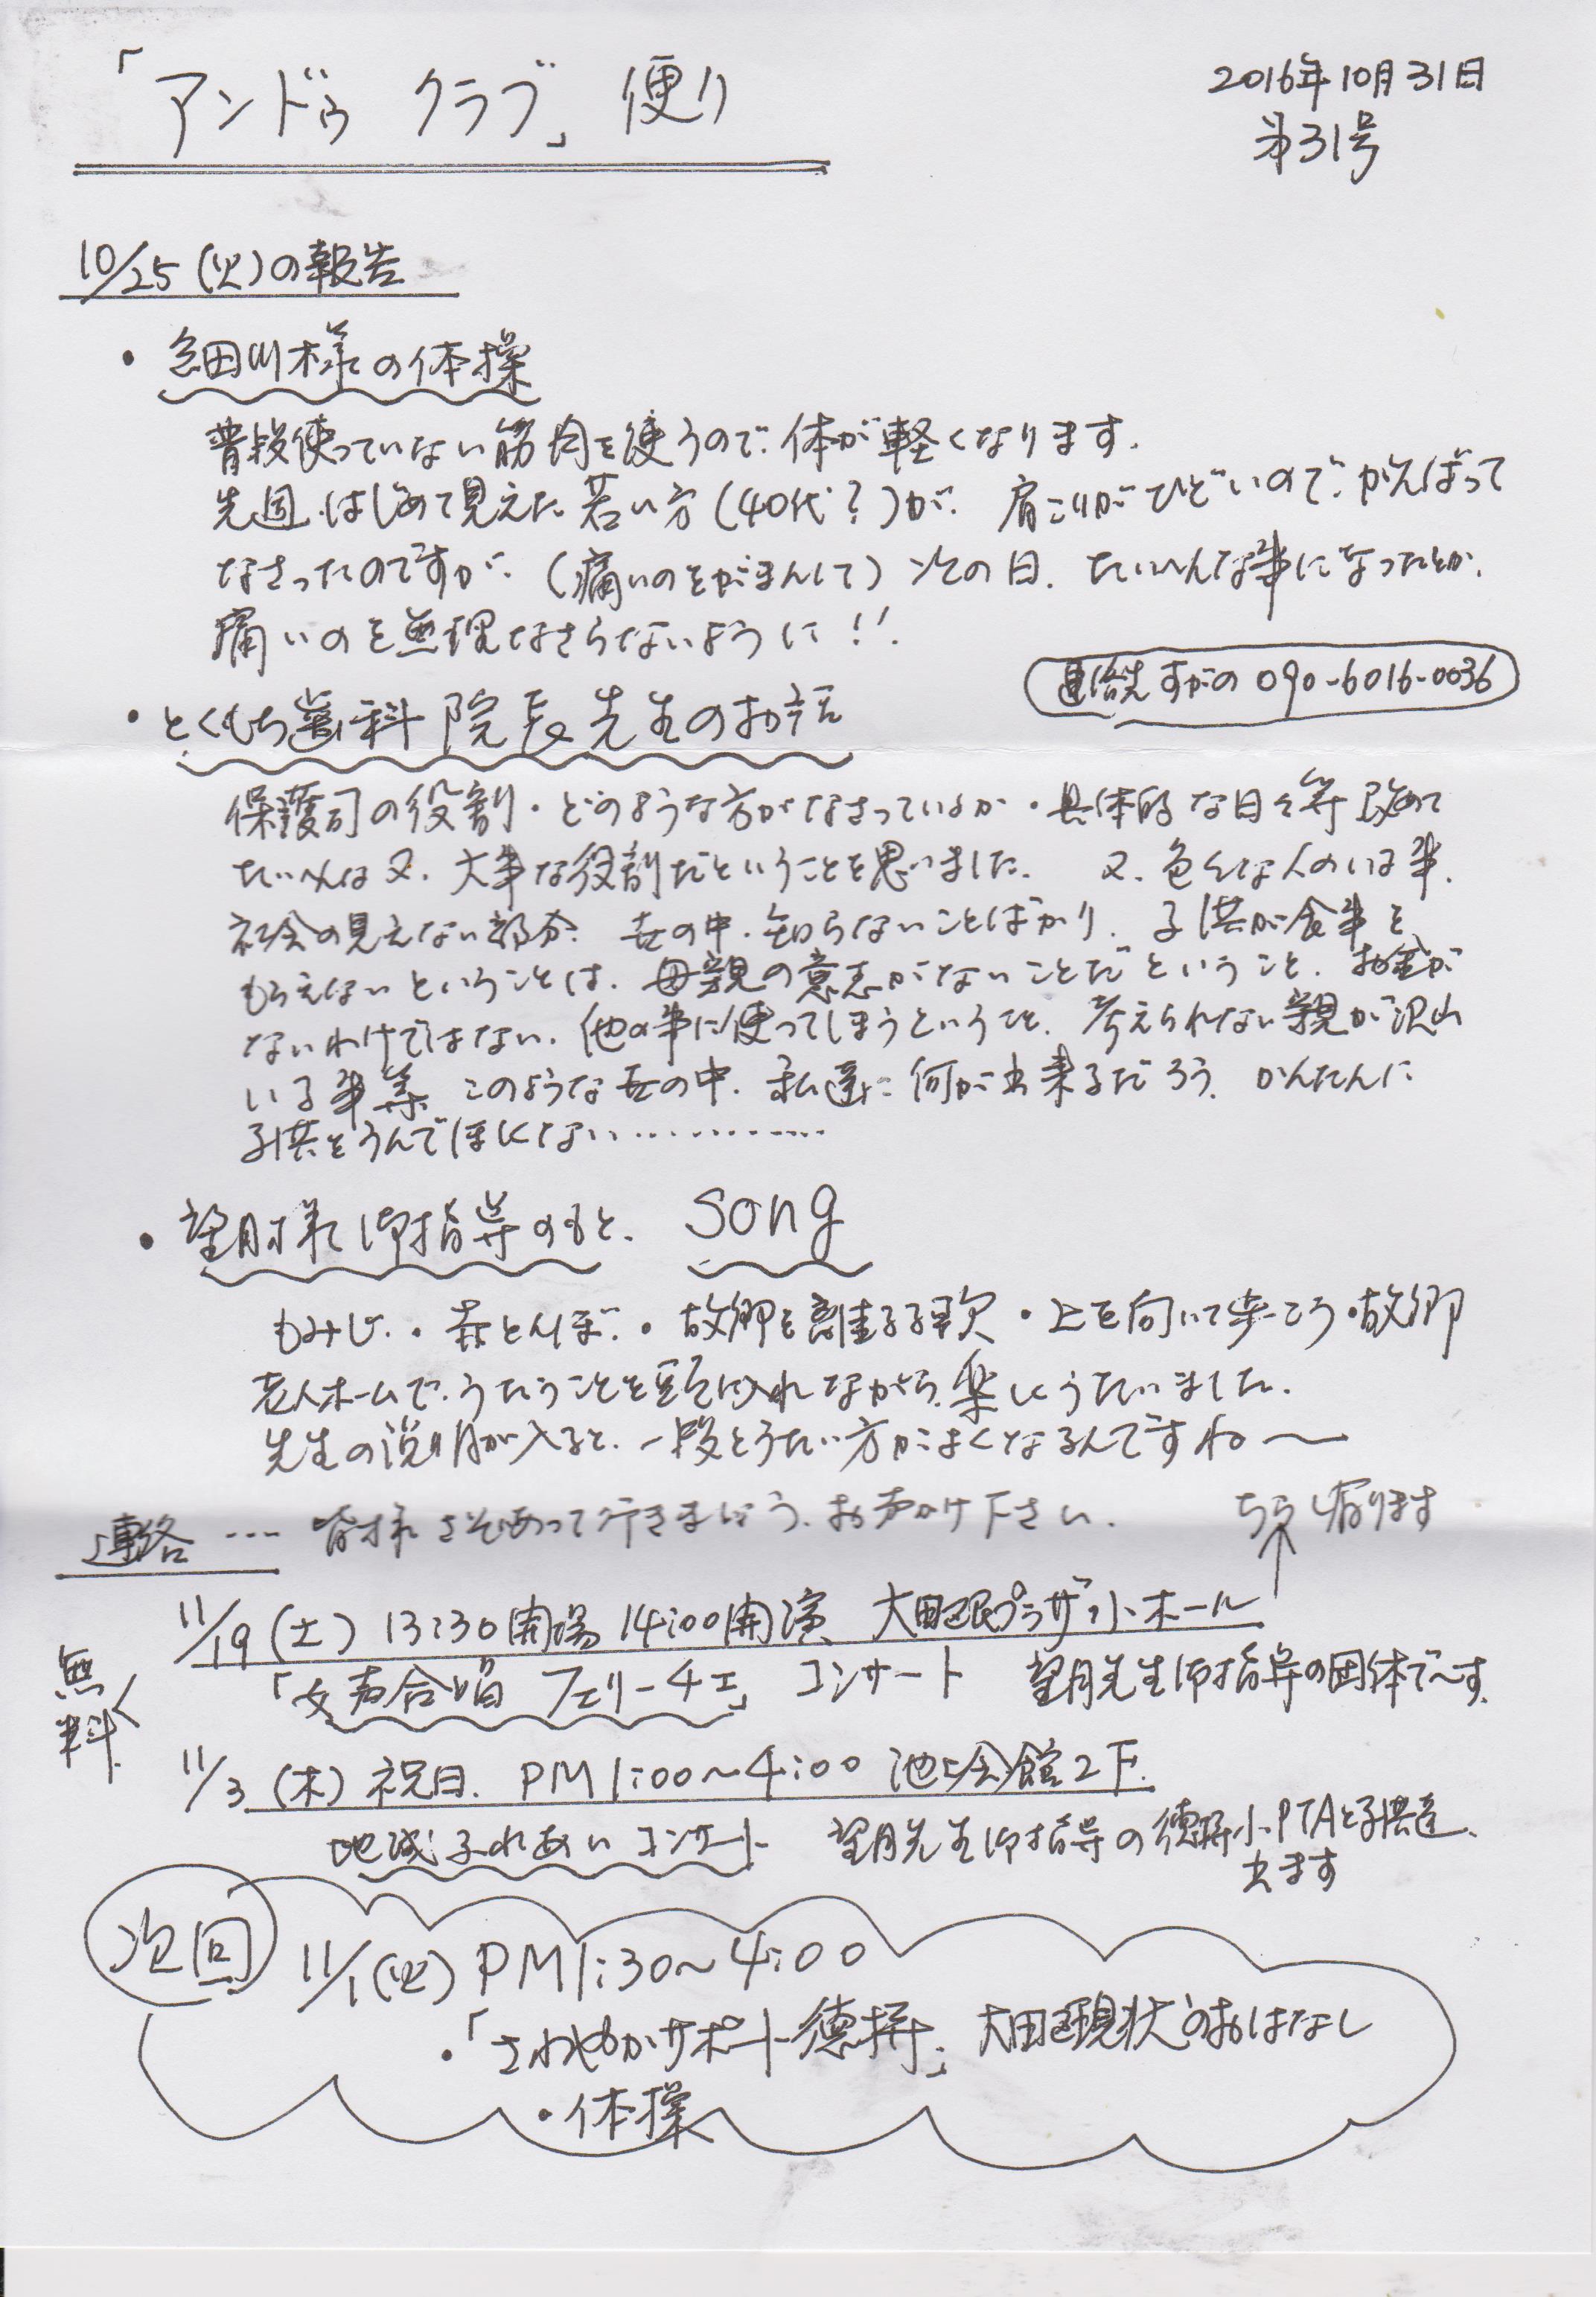 「アンドゥ クラブ」便り
2016年10月31日
第31号
10/25(火)の報告
・細川様の体操
普段使っていない筋肉を使うので、体が軽くなります。
先週、はじめて見えた若い方(40代?)が、肩こりがひどいので、がんばって
なさったのですが、(痛いのをがまんして)次の日、たいへんな事になったとか、
痛いのを無理なさらないように!!
連絡先 すがの 090-6016-0036
・とくもち歯科 院長先生のお話
保護司の役割・どのような方がなさっているか・具体的な日々等 改めて
たいへんな 又、大事な役割だということを思いました。 又、色々な人のいる事、
社会の見えない部分、世の中、知らないことばかり、子供が食事を
もらえないということは、母親の意志がないことだということ、お金が
ないわけではない、他の事に使ってしまうということ、考えられない親が沢山
いる事等 このような世の中、私達に何が出来るだろう、かんたんに
子供をうんでほしくない・・・・・・・・・・・・
・望月様御指導のもと、 song
もみじ・赤とんぼ・故郷を離るる歌・上を向いて歩こう・故郷
老人ホームで、うたうことを頭に入れながら、楽しくうたいました。
先生の説明が入ると、一段とうたい方がよくなるんですね〜
連絡 ‥‥ 皆様 さそいあって行きましょう、お声かけ下さい。
ちらし有ります
11/19(土) 13:30開場 14:00開演 大田区民プラザ小ホール
無料
「女声合唱 フェリーチェ」 コンサート 望月先生御指導の団体で〜す。
11/3(木)祝日、PM1:00〜4:00 池上会館2F、
地域ふれあいコンサート 望月先生御指導の徳持小、PTAと子供達、
出ます
次回 11/1(火)PM1:30〜4:00
・「さわやかサポート徳持」 大田区現状のおはなし
・体操